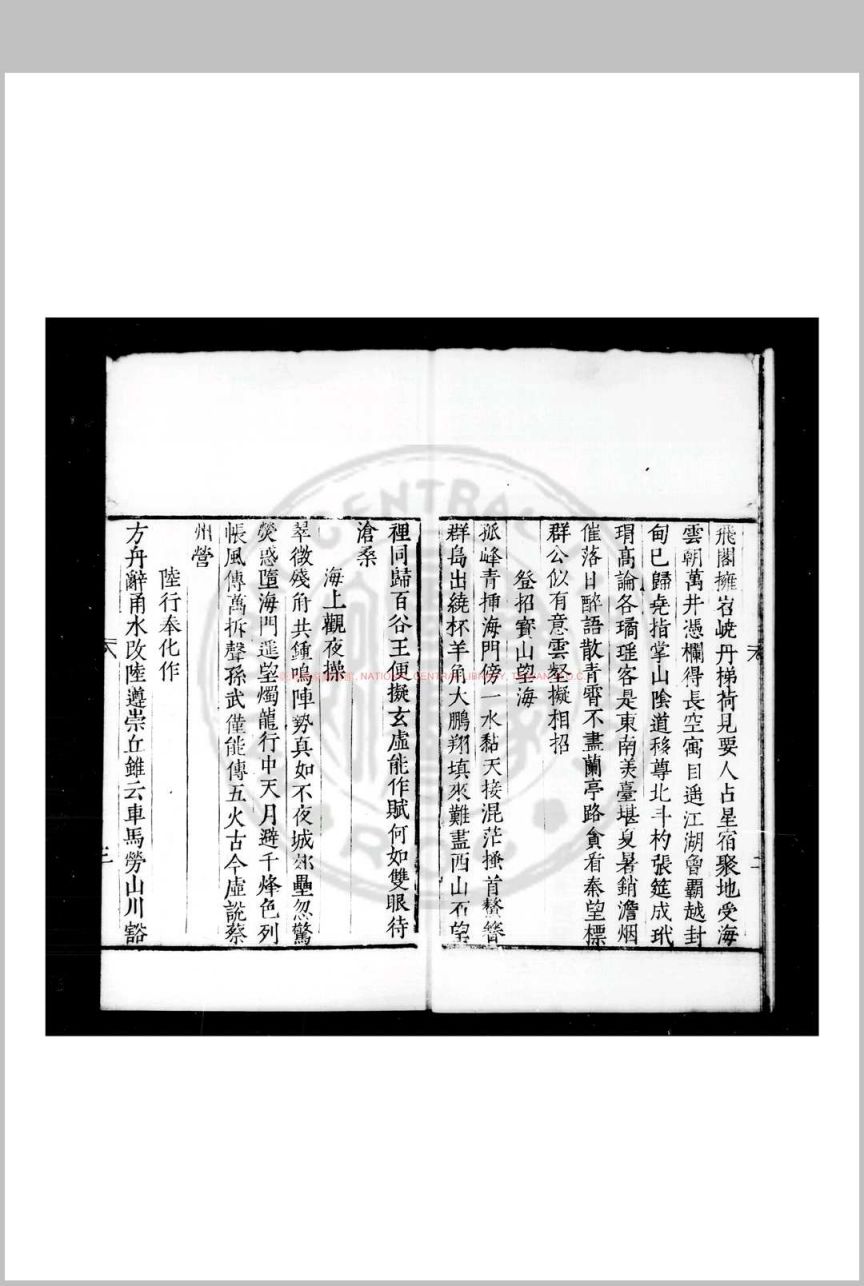 飛閣擁岧嶢丹梯荷見要人占星宿聚地受海
雲朝萬井憑欄得長空寓目遥江湖曾霸越封
甸已歸堯指掌山陰道移尊北斗杓張筵成玳
瑁高論各璚瑶客是東南美臺堪夏暑銷澹烟
催落日醉語散青霄不盡蘭亭路貪看秦望標
群公似有意雲壑擬相招
登招寶山望海
孤峰青揷海門傍一水黏天接混茫搔首鰲簪
群島出繞杯羊角大鵬翔填來難盡西山石望
裡同歸百谷王便擬玄虛能作賦何如雙眼待
滄桑
海上觀夜操
翠微殘角共鍾鳴陣勢真如不夜城壘忽驚
熒惑墮海門遥望燭龍行中天月避千烽色列
帳風傳萬柝聲孫武僅能傳五火古今虛說蔡
州營
陸行奉化作
方舟辭甬水改陸遵崇丘錐云車馬勞山川豁
二
三
CENTRAL
NATIONAL CENTRAL LIBRARY, TAIWAN (R.O.C.)